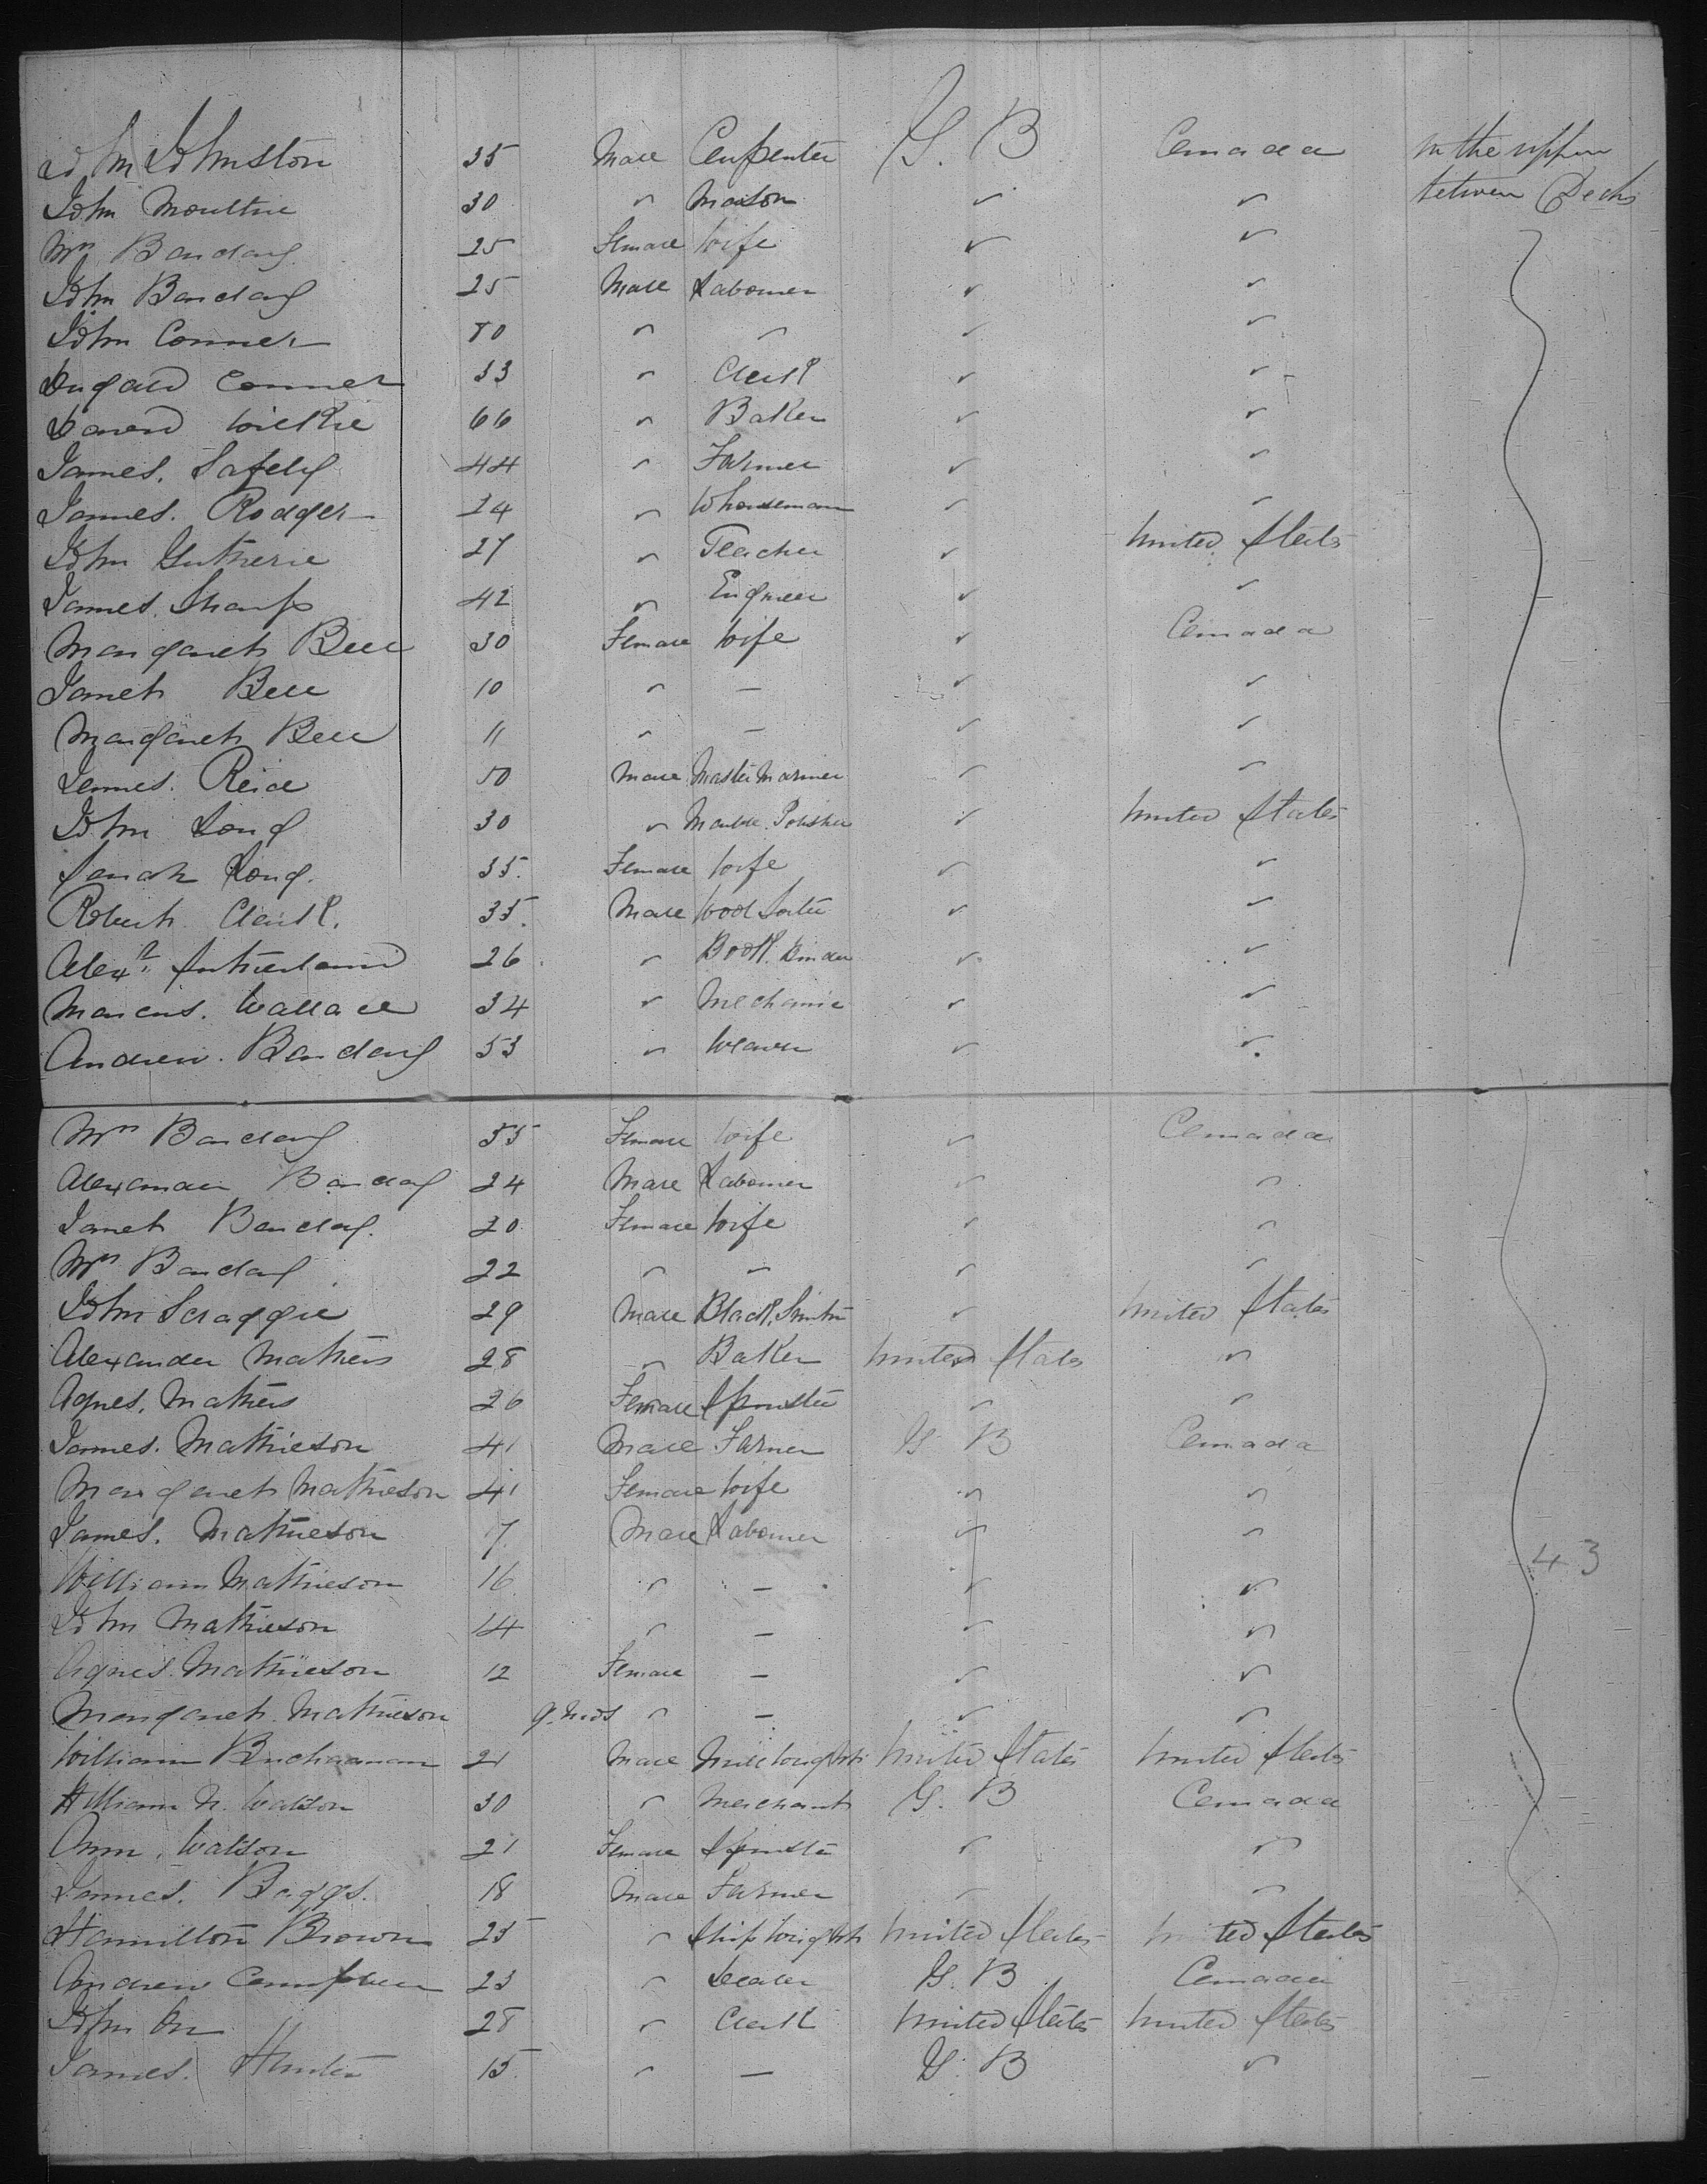 John Johnston 35 Male Carpenter G. B Canada in the upper
John Moultrie 30 " Mason " " between Decks
Mrs Barclay 25 Female Wife " "
John Barclay 25 Male Labourer " "
John Conner 80 " " " "
Dugald Conner 33 " Clerk " "
David Wilkie 66 " Baker " "
James. Safely 44 " Farmer " "
James. Rodger 24 " Whouseman " "
John Gutherie 27 " Teacher " United States
James. Sharp 42 " Engineer " "
Margaret Bell 30 Female Wife " Canada
Janet Bell 10 " — " "
Margaret Bell 11 " — " "
James. Reid 50 Male Master Mariner " "
John Long 30 " Marble Polisher " United States
Sarah Long. 35. Female Wife " "
Robert Clark. 35. Male Wool Sorter " "
Alexr Sutherland 26. " Book Binder " "
Marcus. Wallace 34 " Mechanic " "
Andrew. Barclay 53 " Weaver " "
Mrs Barclay 55 Female Wife " Canada
Alexander Barclay 24 Male Labourer " "
Janet Barclay. 20 Female Wife " "
Mrs Barclay 22 " " " "
John Scraggie 29 Male Black Smith " United States
Alexander Mathers 28 " Baker United States "
Agnes. Mathers 26 Female Spinster " "
James. Mathieson 41 Male Farmer G. B Canada
Margaret Mathieson 41 Female Wife " "
James. Mathieson 7. Male Labourer " "
William Mathieson 16 " — " " 43
John Mathieson 14 " — " "
Agnes. Mathieson 12 Female — " "
Margaret. Mathieson 9. Mos " — " "
William Buchanan 21 Male Millwright United States United States
William N. Watson 30 " Merchant G. B Canada
Ann. Watson 21 Female Spinster " "
James. Boggs. 18 Male Farmer " "
Hamilton Brown 25 " Shipwright United States United States
Andrew Campbell 23 " Dealer G. B Canada
John Orr 28 " Clerk United States United States
James. Hunter 15 " — G. B "